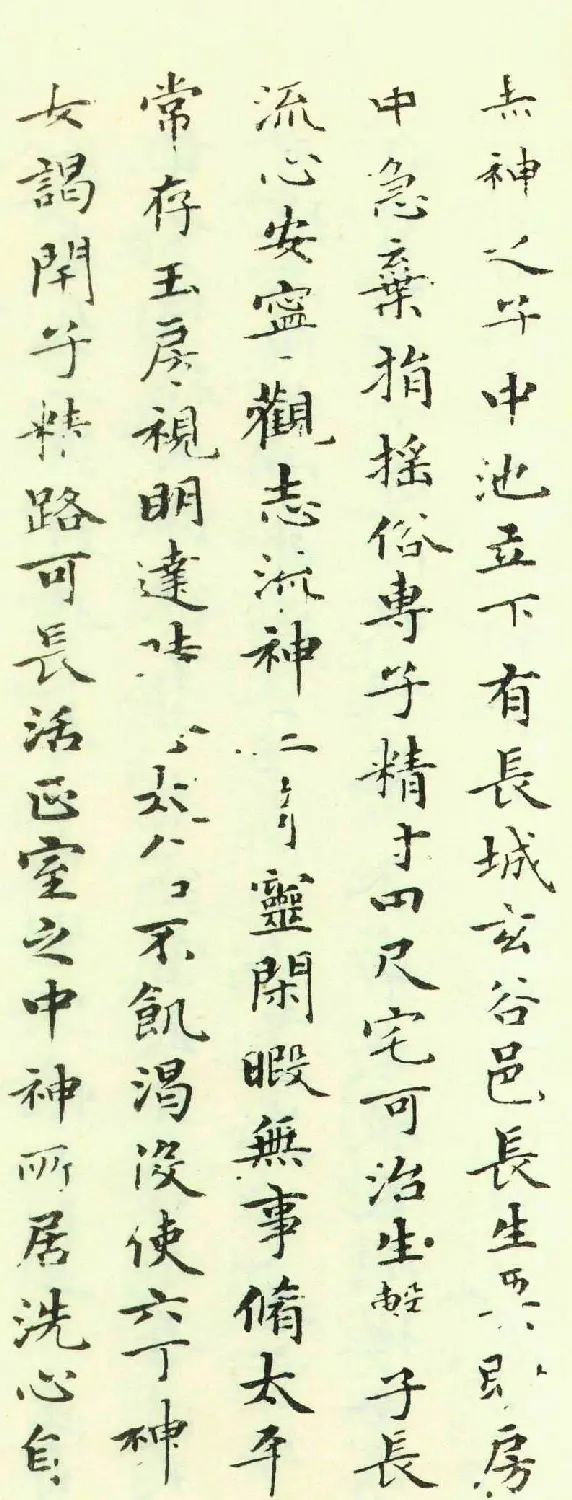 赤神之子中池立下有長城玄谷邑長生要房
中急棄捐搖俗專子精寸田尺宅可治生子長
流心安寧觀志流神靈閑暇無事脩太平
常存玉房視明達不飢渴役使六丁神
女謁閉子精路可長活正室之中神所居洗心自